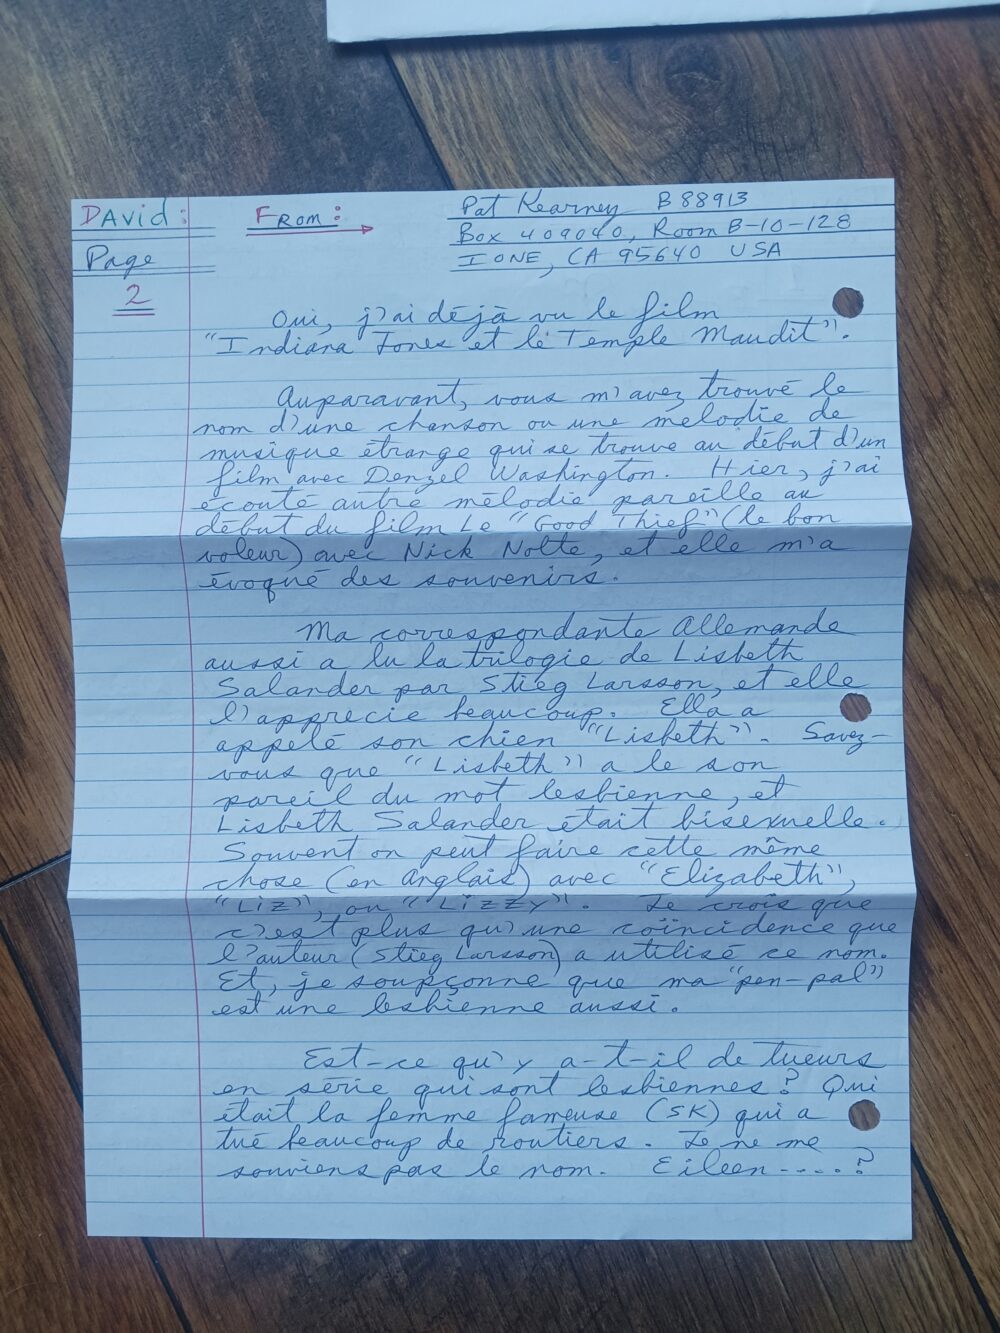 DAvid:
Page
2
From:
Pat Kearney B88913
Box 409040, Room B-10-128
IONE, CA 95640 USA
Oui, j'ai déjà vu le film
"Indiana Jones et le Temple Maudit".
Auparavant, vous m'avez trouvé le
nom d'une chanson ou une mélodie de
musique étrange qui se trouve au début d'un
film avec Denzel Washington. Hier, j'ai
écouté autre mélodie pareille au
début du film Le "Good Thief" (le bon
voleur) avec Nick Nolte, et elle m'a
évoqué des souvenirs.
Ma correspondante Allemande
aussi a lu la trilogie de Lisbeth
Salander par Stieg Larsson, et elle
l'apprécie beaucoup. Ella a
appelé son chien "Lisbeth". Savez-
vous que "Lisbeth" a le son
pareil du mot lesbienne, et
Lisbeth Salander était bisexuelle.
Souvent on peut faire cette même
chose (en Anglais) avec "Elizabeth",
"Liz", ou "Lizzy". Je crois que
c'est plus qu'une coïncidence que
l'auteur (Stieg Larsson) a utilisé ce nom.
Et, je soupçonne que ma "pen-pal"
est une lesbienne aussi.
Est-ce qu'y a-t-il de tueurs
en série qui sont lesbiennes? Qui
était la femme fameuse (SK) qui a
tué beaucoup de routiers. Je ne me
souviens pas le nom. Eileen ....?